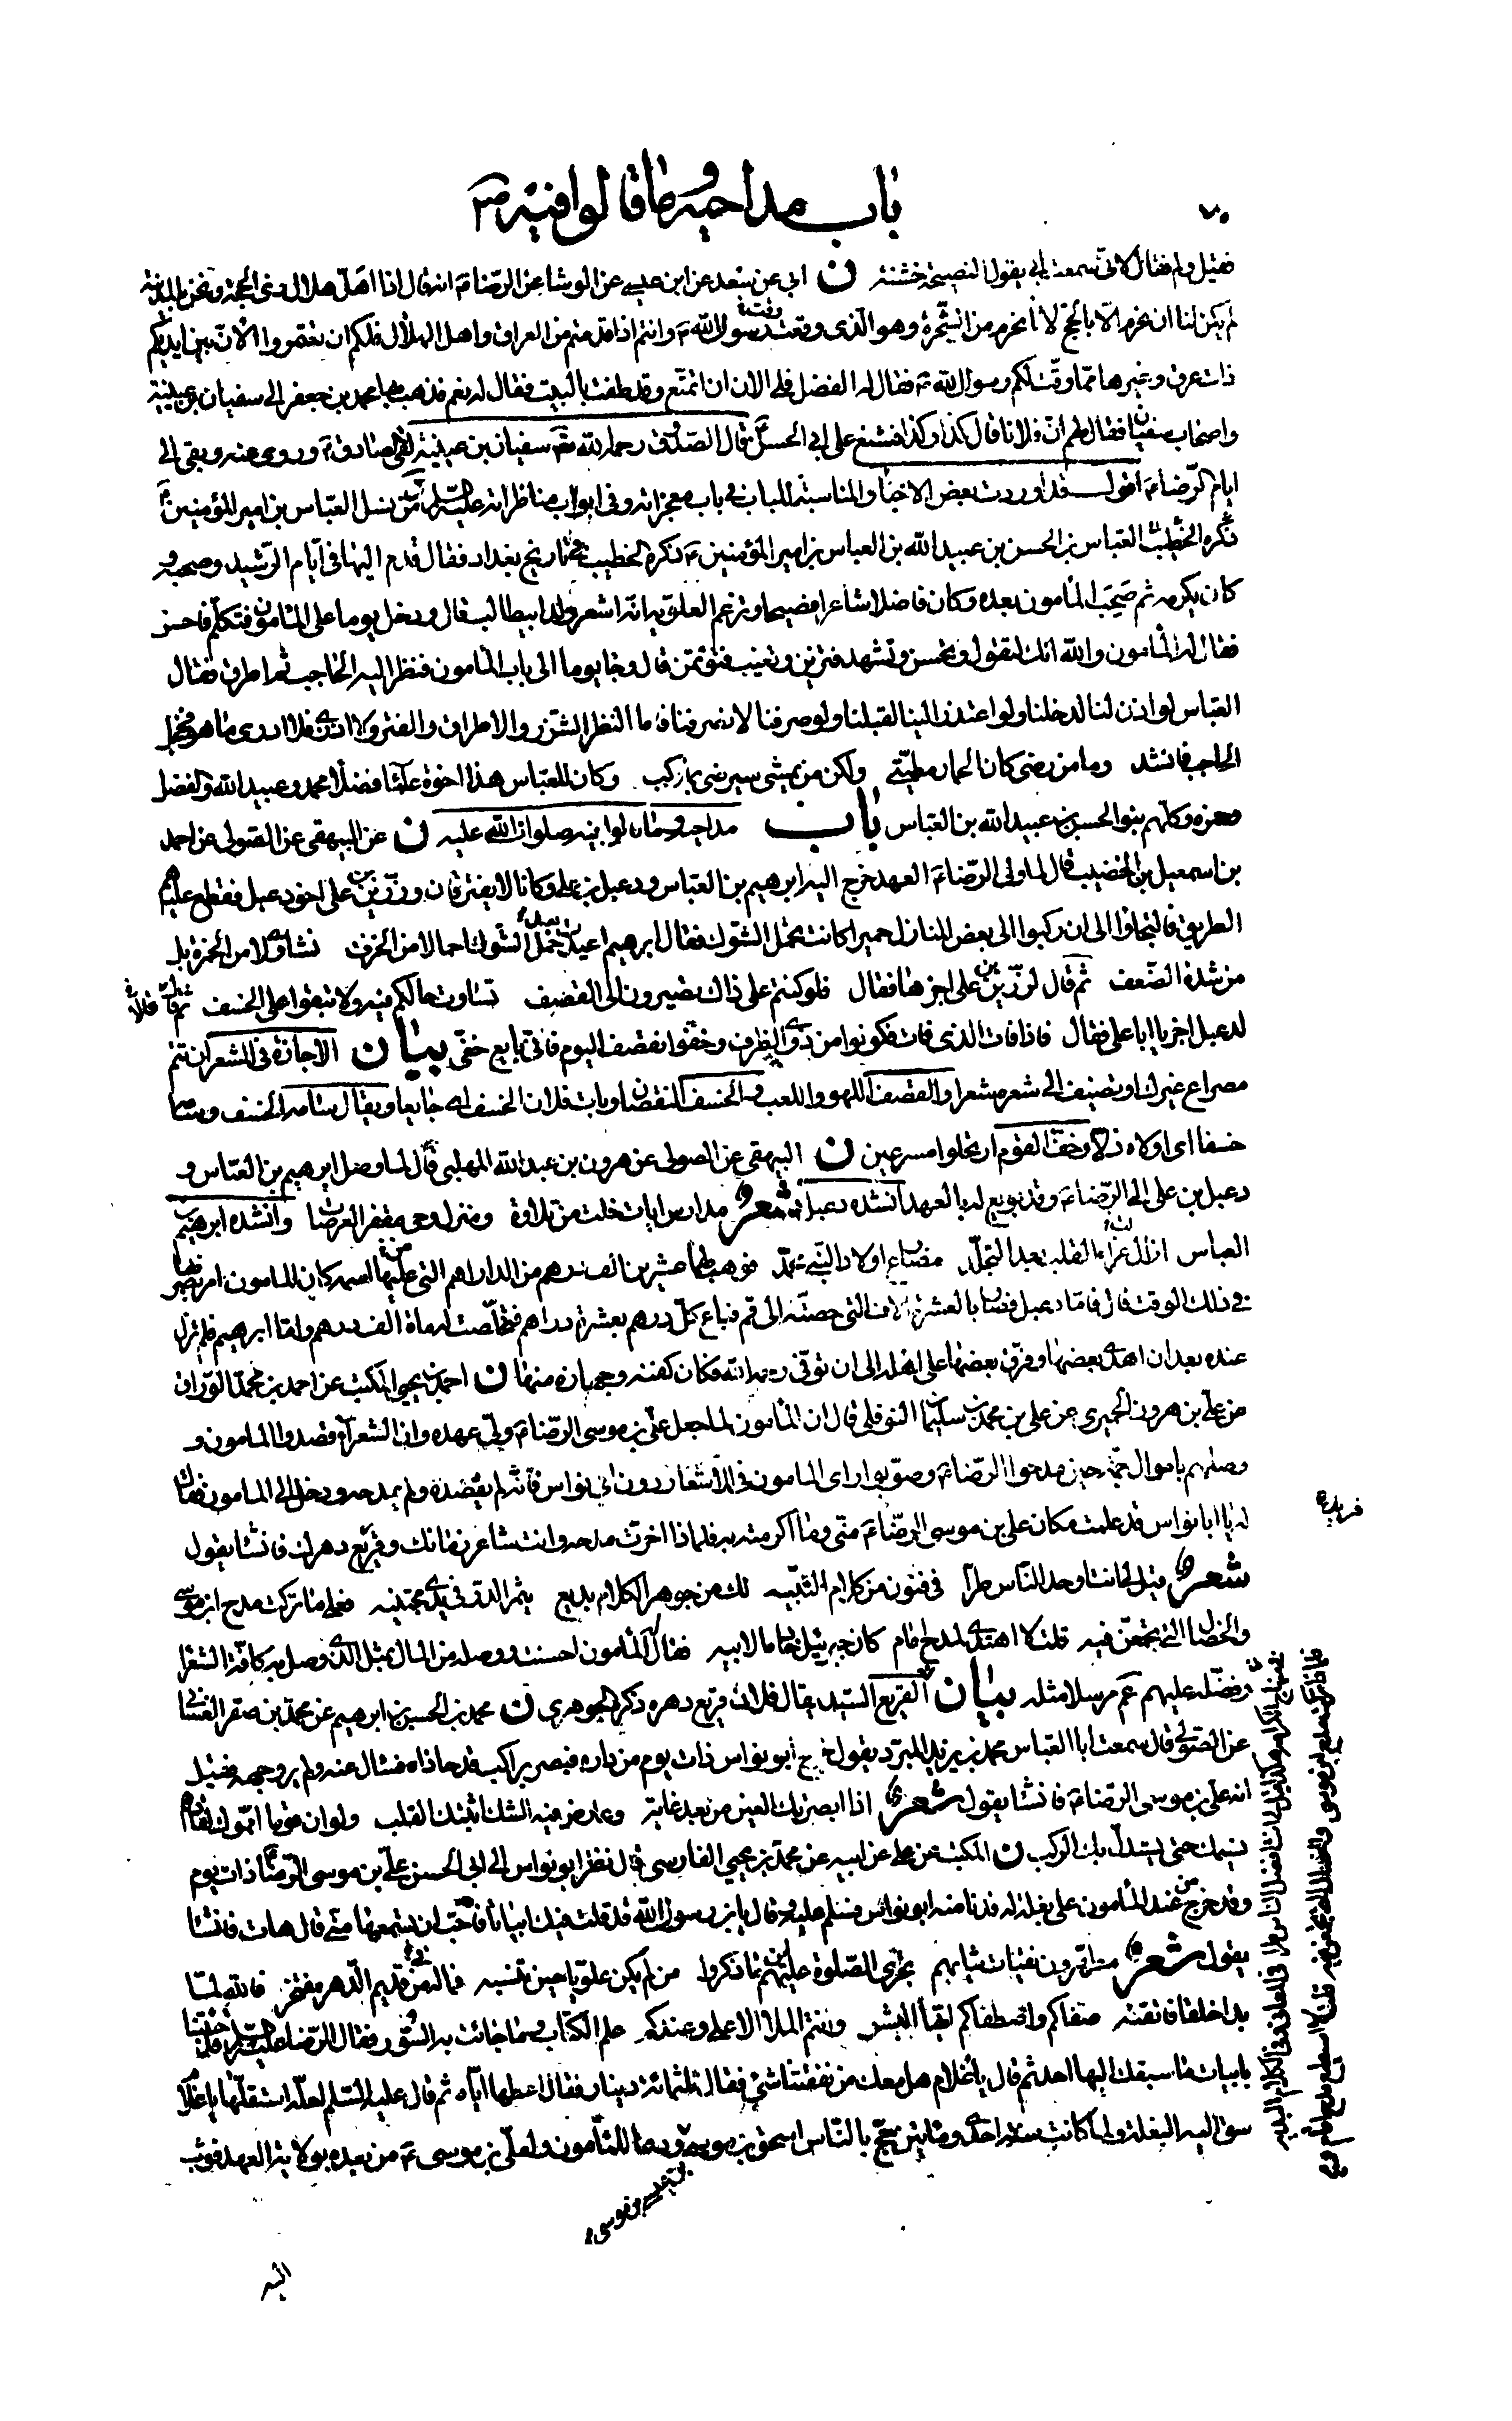 باب مداحيه وما قالوا فيه ص
٧٠
فقيل ولم فقال لانى سمعت ابي يقول النصيحة خشنة ن ابي عن سعد عن ابن عيسى عن الوشا عن الرضا ع انه قال اذا اهل هلال ذى الحجة ونحن بالمدينة
لم يكن لنا ان نحرم الا بالحج لانا نحرم من الشجرة وهو الذى وقت رسول الله ص وانتم اذا قدمتم من العراق واهل الهلال فلكم ان تعتمروا لان بين ايديكم
ذات عرق وغيرها مما وقت لكم رسول الله ص فقال له الفضل فلى الان ان اتمتع وقد طفت بالبيت فقال له نعم فذهب بها محمد بن جعفر الى سفيان بن عيينة
واصحاب سفيان فقال لهم ان فلانا قال كذا وكذا فشنع على ابي الحسن ع قال الصدوق رحمه الله سفيان بن عيينة لقى الصادق ع وروى عنه وبقى الى
ايام الرضا ع اقول قد اوردت بعض الاخبار المناسبة للباب فى باب معجزاته وفى ابواب مناظراته عليه السلم من نسل العباس بن امير المؤمنين ع
ذكره الخطيب العباس بن الحسن بن عبيد الله بن العباس بن امير المؤمنين ع ذكره الخطيب فى تاريخ بغداد فقال قدم اليها فى ايام الرشيد وصحبه و
كان يكرمه ثم صحب المأمون بعده وكان فاضلا شاعرا فصيحا وتزعم العلوية انه اشعر ولد ابيطالب قال ودخل يوما على المأمون فتكلم فاحسن
فقال له المأمون والله انك لتقول وتحسن وتشهد فتزين وتغيب فتؤتمن قال وجا يوما الى باب المأمون فنظر اليه الحاجب ثم اطرق فقال
العباس لو اذن لنا لدخلنا ولو اعتذر الينا لقبلنا ولو صرفنا لانصرفنا فاما النظر الشزر والاطراق والفتر ولا ادرى فلا ادرى ما هو فخجل
الحاجب فانشد وما من رضى كان الحمار مطيتى ولكن من يمشى سيرضى بما ركب وكان للعباس هذا اخوة علما فضلا محمد وعبيد الله والفضل
وحمزه وكلهم بنو الحسن بن عبيد الله بن العباس باب مداحيه وما قالوا فيه صلوات الله عليه ن عن البيهقى عن الصولى عن احمد
بن اسمعيل بن الخضيب قال لما ولى الرضا ع العهد خرج اليه ابرهيم بن العباس ودعبل بن على وكانا لا يفترقان ورزين بن على اخو دعبل فقطع عليهم
الطريق فالتجاوا الى ان ركبوا الى بعض المنازل حميرا كانت تحمل الشوك فقال ابرهيم اعيدت بعد حمل الشوك احمالا من الخزف نشاوى لا من الخمرة بل
من شدة الضعف ثم قال لرزين بن على اجزها فقال فلو كنتم على ذاك تصيرون الى القصف تساوت حالكم فيه ولا تبقوا على الخسف ثم قال
لدعبل اجز يا ابا على فقال فاذا فات الذى فات فكونوا من ذوى الظرف وخفوا نقصف اليوم فانى بايع خفى بيان الاجازة فى الشعر ان تتم
مصراع غيرك او تضيف الى شعره شعرا والقصف اللهو واللعب والخسف النقصان وبات فلان الخسف اى جايعا ويقال سامه الخسف وسامه
خسفا اى اولاه ذلا وخف القوم ارتحلوا مسرعين ن البيهقى عن الصولى عن هرون بن عبد الله المهلبى قال لما وصل ابرهيم بن العباس و
دعبل بن على الى الرضا ع وقد بويع له بالعهد انشده دعبل شعر مدارس ايات خلت من تلاوة ومنزل وحى مقفر العرصات وانشده ابرهيم بن
العباس ازالت عزاء القلب بعد التجلد مصارع اولاد النبى محمد فوهب لهما عشرين الف درهم من الدراهم التى عليها اسمه كان المامون امر بضربها
فى ذلك الوقت قال فاما دعبل فصار بالعشرة الاف التى حصته الى قم فباع كل درهم بعشرة دراهم فتخلصت له مائة الف درهم واما ابرهيم فلم تزل
عنده بعد ان اهدى بعضها وفرق بعضها على اهله الى ان توفى رحمه الله فكان كفنه وجهازه منها ن احمد بن يحيى المكتب عن احمد بن محمد الوراق
عن على بن هرون الحميرى عن على بن محمد بن سليمان النوفلى قال ان المأمون لما جعل على بن موسى الرضا ع ولى عهده وان الشعرآء قصدوا المامون و
وصلهم باموال جمة حين مدحوا الرضا ع وصوبوا راى المامون فى الاشعار دون ابى نواس فانه لم يقصده ولم يمدحه ودخل الى المامون فقال
له يا ابا نواس قد علمت مكان على بن موسى الرضا ع منى وما اكرمته به فلماذا اخرت مدحه وانت شاعر زمانك وقريع دهرك فانشا يقول
شعر قيل لى انت اوحد الناس طرا فى فنون من كلام النبيه لك من جوهر الكلام بديع يثمر الدر فى يدى مجتنيه فعلى ما تركت مدح ابن موسى
والخصال التى تجمعن فيه قلت لا اهتدى لمدح امام كان جبرئيل خادما لابيه فقال المأمون احسنت ووصله من المال بمثل الذى وصل به كافة الشعرا
وفضله عليهم عم مرسلا مثله بيان القريع السيد يقال فلان قريع دهره ذكره الجوهرى ن محمد بن الحسن بن ابرهيم عن محمد بن صقر الغسانى
عن الصولى قال سمعت ابا العباس محمد بن يزيد المبرد يقول خرج ابو نواس ذات يوم من داره فبصر براكب قد حاذاه فسال عنه ولم ير وجهه فقيل
انه على بن موسى الرضا ع فانشا يقول شعر اذا ابصرتك العين من بعد غاية وعارض فيه الشك اثبتك القلب ولو ان قوما امموك لقادهم
نسيمك حتى يستدل بك الركب ن المكتب عن على عن ابيه عن محمد بن يحيى الفارسى قال نظر ابو نواس الى ابى الحسن على بن موسى الرضا ع ذات يوم
وقد خرج من عند المأمون على بغلة له فدنا منه ابو نواس فسلم عليه وقال يا بن رسول الله قد قلت فيك ابياتا فاحب ان تسمعها منى قال هات فانشا
يقول شعر مطهرون نقيات ثيابهم تجرى الصلوة عليهم اينما ذكروا من لم يكن علويا حين تنسبه فما له من قديم الدهر مفتخر فالله لما
بدا خلقا فاتقنه صفاكم واصطفاكم ايها البشر وانتم الملا الاعلى وعندكم علم الكتاب وما جائت به السور فقال الرضا عليه السلم قد جئتنا
بابيات ما سبقك اليها احد ثم قال يا غلام هل معك من نفقتنا شئ فقال ثلثمائة دينار فقال اعطها اياه ثم قال عليه السلم لعله استقلها يا غلام
سق اليه البغلة ولما كانت سنة احدى ومأتين حج بالناس اسحق بن موسى ودعا للمأمون ولعلى بن موسى ع من بعده بولاية العهد فوثب
بن عيسى بن موسى
اليه